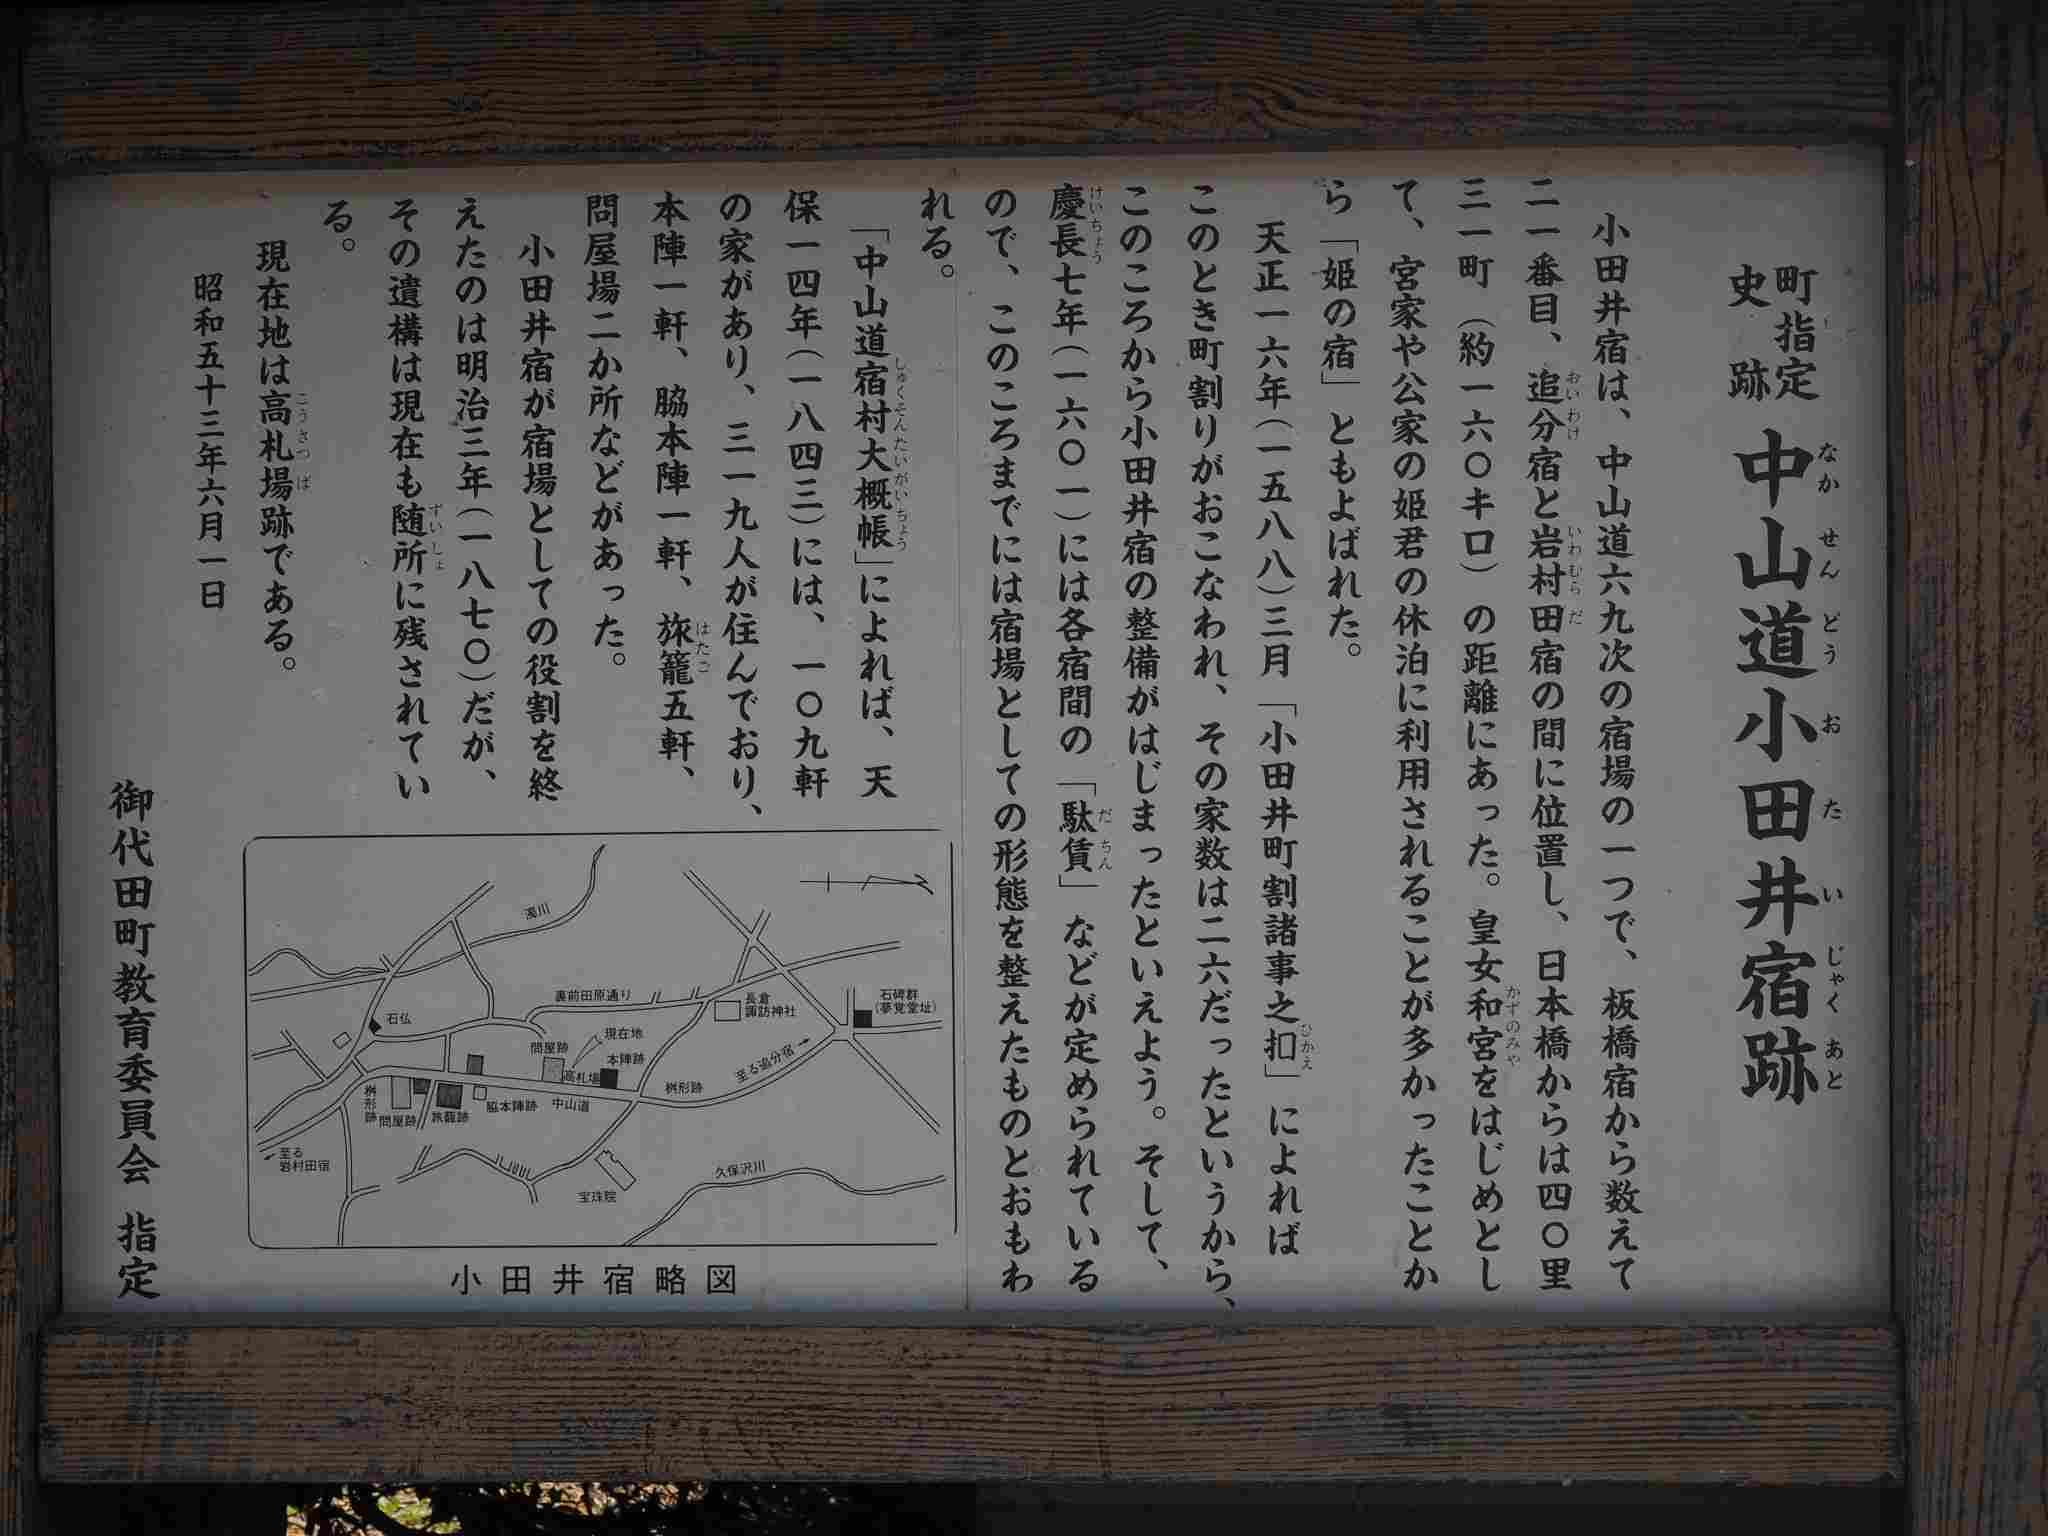 町指定
史跡
中山道小田井宿跡
なかせんどうおたいじゃくあと
小田井宿は、中山道六九次の宿場の一つで、板橋宿から数えて
二一番目、追分宿と岩村田宿の間に位置し、日本橋からは四〇里
おいわけ いわむらだ
三一町（約一六〇キロ）の距離にあった。皇女和宮をはじめとし
かずのみや
て、宮家や公家の姫君の休泊に利用されることが多かったことか
ら「姫の宿」ともよばれた。
天正一六年（一五八八）三月「小田井町割諸事之扣」によれば
ひかえ
このとき町割りがおこなわれ、その家数は二六だったというから、
このころから小田井宿の整備がはじまったといえよう。そして、
慶長七年（一六〇一）には各宿間の「駄賃」などが定められている
けいちょう だちん
ので、このころまでには宿場としての形態を整えたものとおもわ
れる。
「中山道宿村大概帳」によれば、天
しゅくそんたいがいちょう
保一四年（一八四三）には、一〇九軒
の家があり、三一九人が住んでおり、
本陣一軒、脇本陣一軒、旅籠五軒、
はたご
問屋場二か所などがあった。
小田井宿が宿場としての役割を終
えたのは明治三年（一八七〇）だが、
その遺構は現在も随所に残されてい
ずいしょ
る。
現在地は高札場跡である。
こうさつば
昭和五十三年六月一日
御代田町教育委員会 指定
濁川
裏前田原通り
長倉
諏訪神社
石碑群
（夢覚堂址）
石仏
現在地
問屋跡
本陣跡
高札場
桝形跡
至る追分宿
桝形跡
問屋跡
旅籠跡
脇本陣跡
中山道
至る
岩村田宿
宝珠院
久保沢川
小田井宿略図